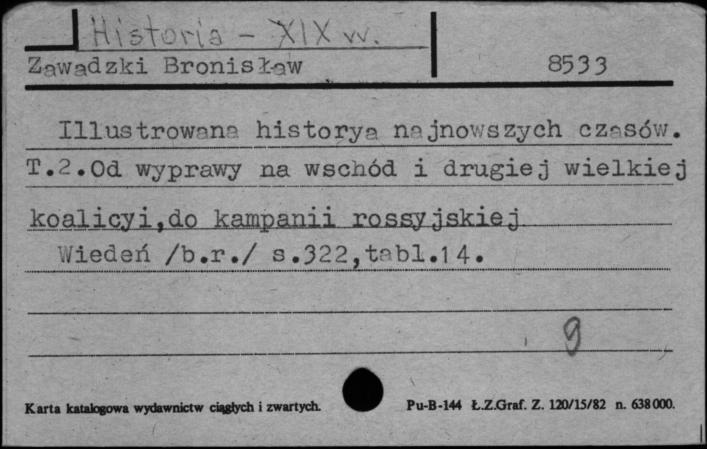 Historia - XIX w.
Zawadzki Bronisław 8533
Illustrowana historya najnowszych czasów.
T.2.Od wyprawy na wschód i drugiej wielkiej
koalicyi,do kampanii rossyjskiej
Wiedeń /b.r./ s.322,tabl.14.
9
Karta katalogowa wydawnictw ciągłych i zwartych. Pu-B-144 Ł.Z.Graf. Z. 120/15/82 n. 638000.